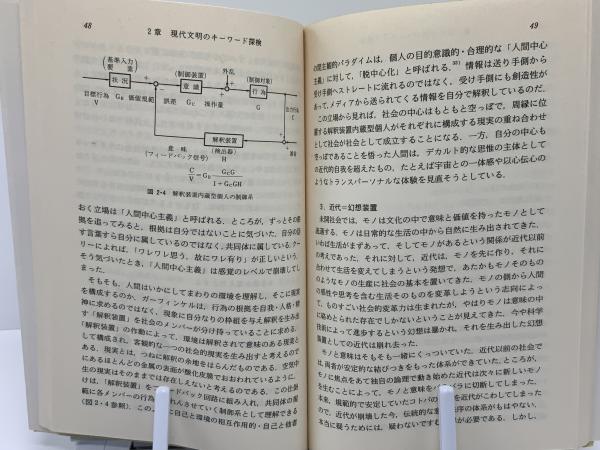 48
2章 現代文明のキーワード探検
(基準入力)
要 葉
状 況
目標行為
V
GR 価値規範
誤差
(制御装置)
意 識
GC
操作量
外乱
(制御対象)
行 為
G
f
解釈装置
意 味
(フィードバック信号)
(検出器)
H
C/V = GR GCG/1+GCGH
図 2-4 解釈装置内蔵型個人の制御系
おく立場は「人間中心主義」と呼ばれる。ところが、ずっとその根
拠を追ってみると、根拠は自分ではないことに気づいた。自分の話
す言葉すら自分に属しているのではなく、共同体に属している。
リーによれば、「ワレワレ思う、故にワレ有り」が正しいという。
そう気づいたとき、「人間中心主義」は感覚のレベルで崩壊してし
まった。
そもそも、人間はいかにしてまわりの環境を理解し、そこに現実
を構成するのか。ガーフィンケルは、行為の根拠を自我・人格・精
神に求めるのではなく、現象に自分なりの枠組を与え解釈を生み出
す「解釈装置」を社会のメンバーが分け持っていることに求める。
「解釈装置」の作動によって、環境は解釈されて意味のある現実と
して構成され、客観的な一つの社会的現実を生み出すと考えるので
ある。現実とは、つねに解釈の余地をはらんだものである。空気中
にあるほとんどの金属の表面が酸化皮膜でおおわれているように、
生の現実はそのままでは存在しえないと考えるのである。この仕掛
けは、「解釈装置」を
範に各メンバーの行為
(図2・4参照)。この
ードバック回路に組み入れ、共同体の規
れんさせていく制御系として理解できる
に自己と環境の相互作用的・自己と他者
49
の間主観的パラダイムは、個人の目的意識的・合理的な「人間中心
主義」に対して、「脱中心化」と呼ばれる。情報は送り手側から
受け手側へストレートに流れるのではなく、受け手側にも創造性が
あって、メディアから送られてくる情報を自分で解釈しているのだ。
この立場から見れば、社会の中心はもともと空っぽで、周縁に位
置する解釈装置内蔵型個人がそれぞれに構成する現実の重ね合わせ
として社会が社会として成立することになる。一方、自分の中心も
空っぽであることを悟った人間は、デカルト的な思惟の主体として
の近代的自我を超えたもの、たとえば宇宙との一体感や以心伝心の
ようなトランスパーソナルな体験を見直そうとしている。
3. 近代=幻想装置
未開社会では、モノは文化の中で意味と価値を持ったモノとして
流通する。モノは日常的な生活の中から自然に生み出されてきた。
いわば生活がまずあって、そしてモノがあるという関係が近代以前
の考えであった。それに対して、近代は、モノを先に作り、それに
合わせて生活を変えてしまうという発想で、あたかもモノそのもの
のようなモノの生産に社会の基本を置いてきた。モノの側から人間
の感性や思考を含む生活そのものを変革しようという志向によっ
て、ものすごい社会的変革力は生まれたが、やはりモノは意味の中
に絡められた存在でしかないということが見えてきた。今や科学
技術によって進歩するという幻想は暴かれ、それを生み出した幻想
装置としての近代は崩れ去った。
モノと意味はそもそも一緒にくっついていた。近代以前の社会で
は、両者が安定的な結びつきをもった体系ができていた。ところが、
モノに焦点をあて独自の論理で動き始めた近代は次々に新しいモノ
を生むことによって、モノと意味を
ラに切断してしまった。
本来、規範的で安定していたコトバの
を近代がこわしてしまった
ので、近代が崩壊した今、伝統的な
序の体系がもはやない。
本当に疑うためには、疑わないです
が必要である。しかし、